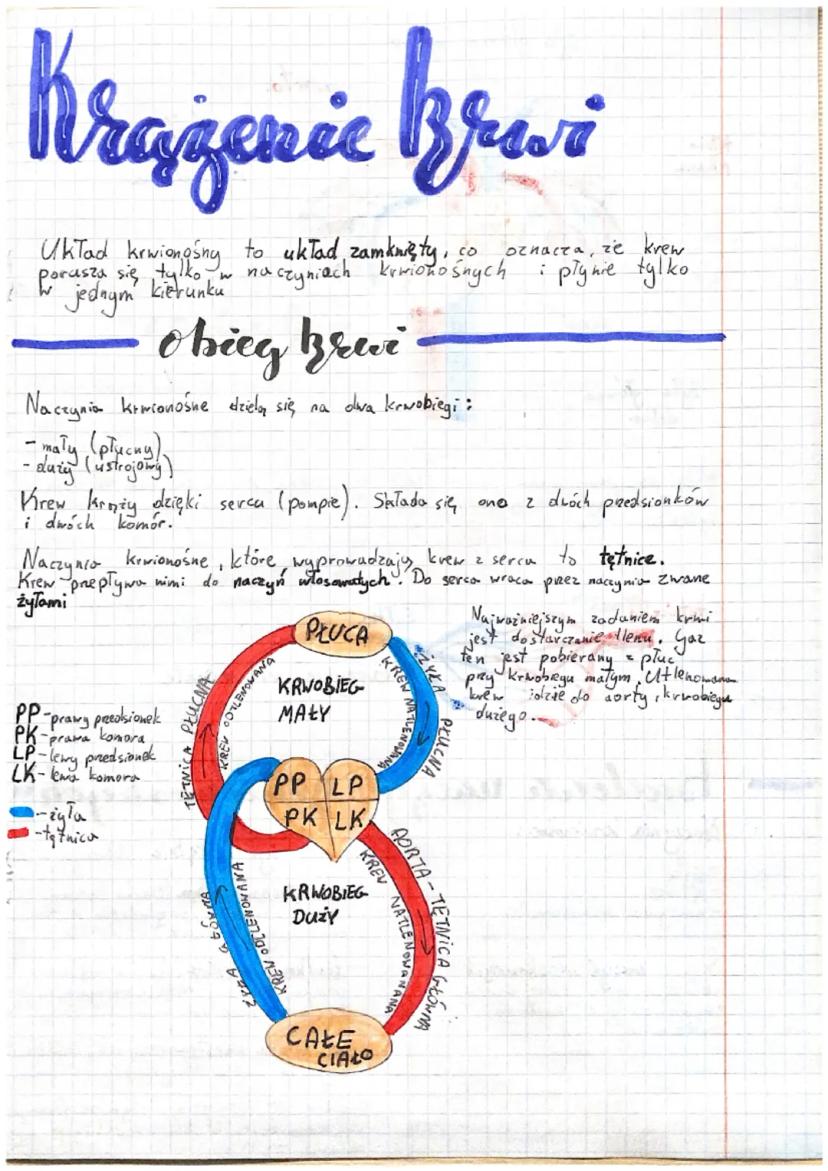 Krążenie krwi
Układ krwionośny to układ zamknięty, co oznacza, że krew
porusza się tylko w naczyniach krwionośnych i płynie tylko
w jednym kierunku
obieg krwi
Naczynia krwionośne dzielą się na dwa krwobiegi:
- mały (płucny)
- duży (ustrojowy)
Krew krąży dzięki sercu (pompie). Składa się ono z dwóch przedsionków
i dwóch komór.
Naczynia krwionośne, które wyprowadzają krew z serca to tętnice.
Krew przepływa nimi do naczyń włosowatych. Do serca wraca przez naczynia zwane
żyłami
Najważniejszym zadaniem krwi
jest dostarczanie tlenu. Gaz
ten jest pobierany z płuc
przy krwobiegu małym. Utlenowana
krew idzie do aorty i krwobiegu
dużego.
PŁUCA
KRWOBIEG
MAŁY
TĘTNICA PŁUCNA
KREW ODTLENOWANA
ŻYŁA PŁUCNA
KREW NATLENOWANA
PP - prawy przedsionek
PK - prawa komora
LP - lewy przedsionek
LK - lewa komora
- żyła
- tętnica
PP LP
PK LK
KRWOBIEG
DUŻY
ŻYŁA GŁÓWNA
KREW ODTLENOWANA
AORTA - TĘTNICA GŁÓWNA
KREW NATLENOWANA
CAŁE
CIAŁO